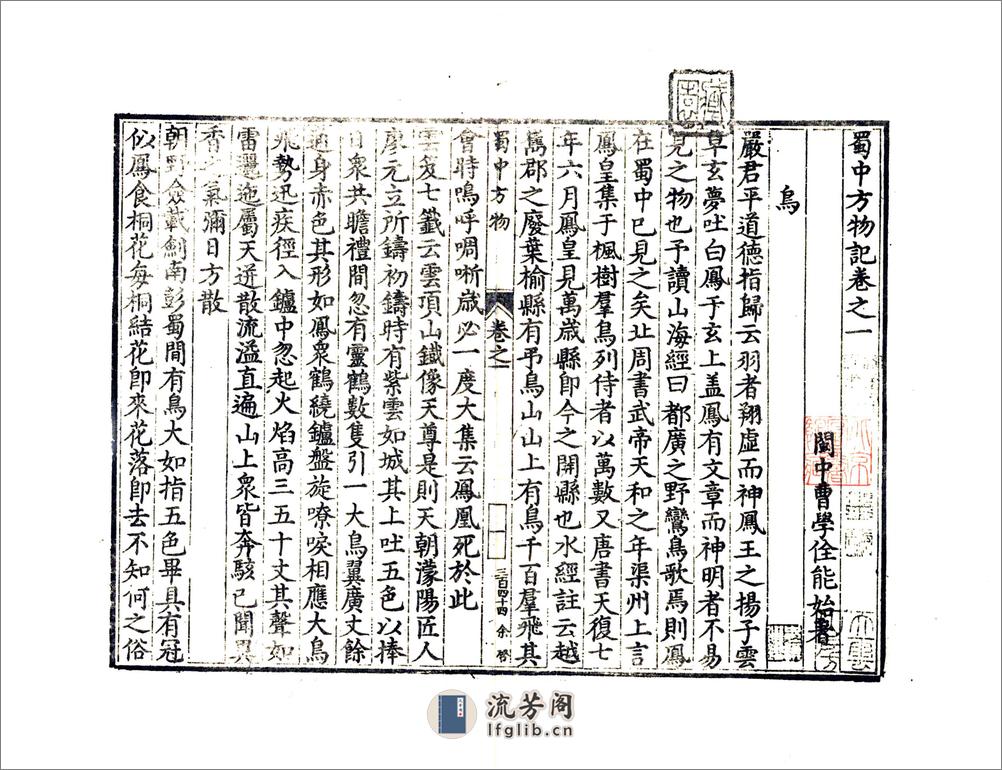 蜀中方物記卷之一
閩中曹學佺能始著
鳥
嚴君平道德指歸云羽者翔虛而神鳳王之揚子雲
草玄夢吐白鳳于玄上盖鳳有文章而神明者不易
見之物也予讀山海經曰都廣之野鸞鳥歌焉則鳳
在蜀中已見之矣北周書武帝天和之年渠州上言
鳳皇集于楓樹羣鳥列侍者以萬數又唐書天復七
年六月鳳皇見萬歲縣即今之開縣也水經註云越
嶲郡之廢葉榆縣有弔鳥山山上有鳥千百羣飛其
蜀中方物 卷之一 一 三百四十四 余啓
會時鳴呼啁哳歲必一度大集云鳳凰死於此
雲笈七籤云雲頂山鐵像天尊是則天朝濛陽匠人
廖元立所鑄初鑄時有紫雲如城其上吐五色以捧
日衆共瞻禮間忽有靈鶴數隻引一大鳥翼廣丈餘
通身赤色其形如鳳衆鶴繞鑪盤旋嘹唳相應大鳥
飛勢迅疾徑入鑪中忽起火焰高三五十丈其聲如
雷邐迤屬天迸散流溢直遍山上衆皆奔駭已聞異
香之氣彌日方散
朝野僉載劍南彭蜀間有鳥大如指五色畢具有冠
似鳳食桐花每桐結花即來花落即去不知何之俗
流芳阁
lfglib.cn